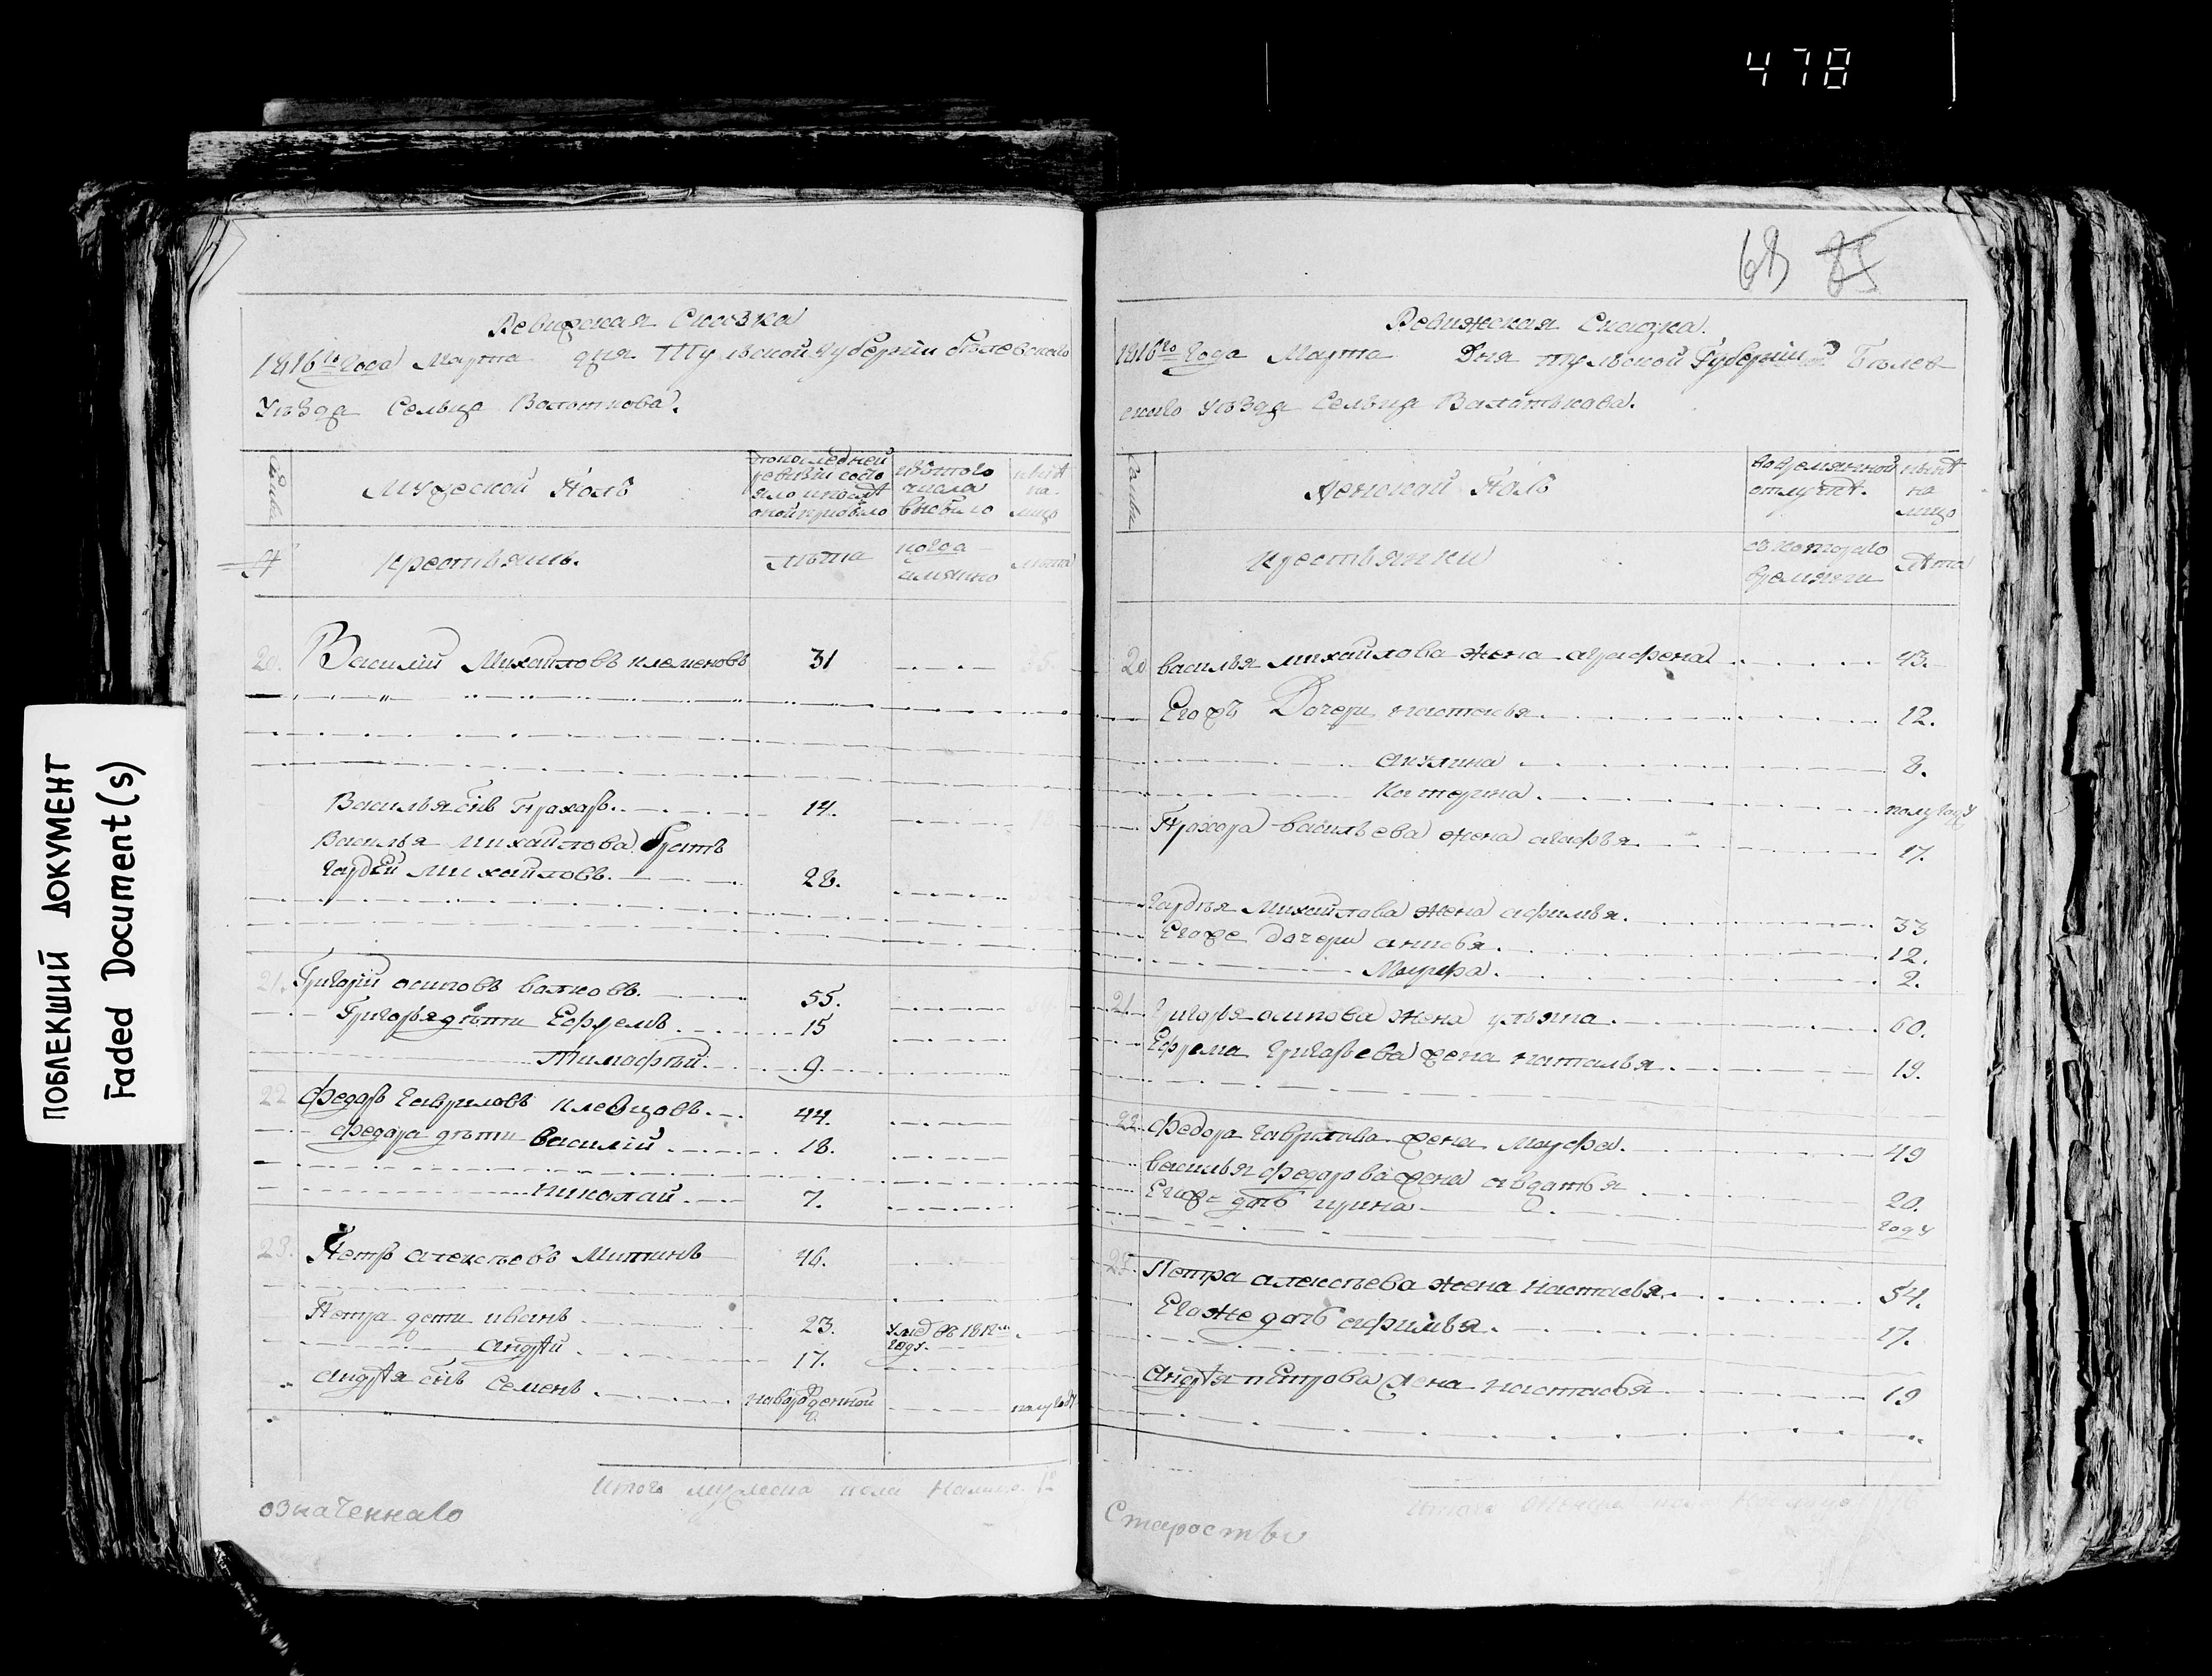 478
ПОБЛЕКШИЙ ДОКУМЕНТ
Faded Document(s)
Ревизская Сказка
1816го года Марта дня Тульской губернии белевскаго
Уезда Сельца Валоткова.
Мужеской Полъ
по последней
ревизии состо
яло и после
оной прибыло
изтого
числа
выбыло
ныне
на
лицо
крестьяне.
лета
когда
имянно
лета
20. Василий Михайловъ клеменовъ 31
Василья снъ Прахоръ. 14.
Василья Михайлова братъ
гардей Михайловъ. 28.
21. Григорий осиповъ валковъ. 55.
Григорья дети Ефремъ 15
Тимофей. 9.
22 Федоръ гавриловъ клевцовъ. 44.
Федора дети Василий 18.
николай. 7.
23. Петръ алексеевъ Митинъ 46.
Петра дети иванъ 23.
году.
андрей 17.
андрея снъ Семенъ. новорожденной полугоду
Итого мужеска пола Налицо
означеннаго
68 85
Ревижская Сказка.
1816го года Марта Дня тульской Губернии Белев
скаго уезда Сельца Валотькова.
Женской Полъ
во временной
отлучке.
ныне
на
лицо
крестьянки
с котораго
времяни
лета
20 василья михайлова жена аграфена 43.
Егожъ Дочери настасья 12.
акулина 8.
Катерина полугоду
Прахора васильева жена агафья 17.
гардея Михайлова жена афимья. 33
Егоже дочери анисья. 12.
Марфа. 2.
21. Григорья осипова жена ульяна 60.
Ефрема григорьева жена наталья 19.
22. Федора гаврилова жена Марфа. 49
василья федорова жена авдатья 20.
Егоже дочь ирина году
23. Петра алексеева жена настасья 54.
Егоже дочь афимья. 17.
андрея петрова жена настасья 19
Старосты